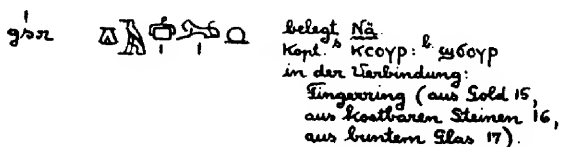 gśr belegt Nä
Kopt. ˢ· ⲕⲥⲟⲩⲣ : ᵇ· ϣϭⲟⲩⲣ
in der Verbindung:
Fingerring (aus Gold 15,
aus kostbaren Steinen 16,
aus buntem Glas 17).